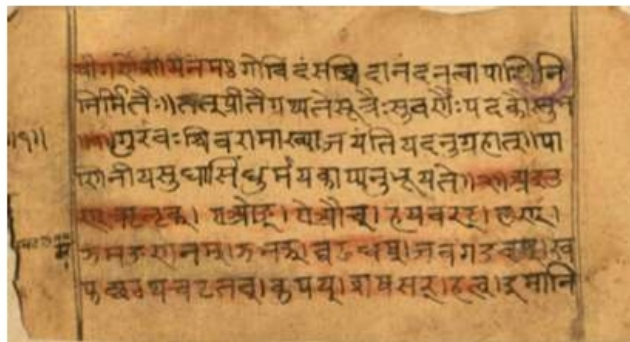 श्रीगणेशायनमः गोविंदंसच्चिदानंदंनत्वापाणिनि
निर्मितैः॥तत्प्रीत्यैग्रथ्यतेसूत्रैःसुवर्णैःपदकौस्तुभ
॥१॥
गुरवःशिवरामाख्याजयंतियदनुग्रहात्॥पा
णिनीयसुधासिंधुर्मयकाप्यनुभूयते॥ अइउ
ण् ऋऌक्। एओङ्। ऐऔच्। हयवरट्। लण्।
ञमङणनम्। झभञ्। घढधष्। जबगडदश्। ख
फछठथचटतव्। कपय्। शषसर्। हल्। इमानि